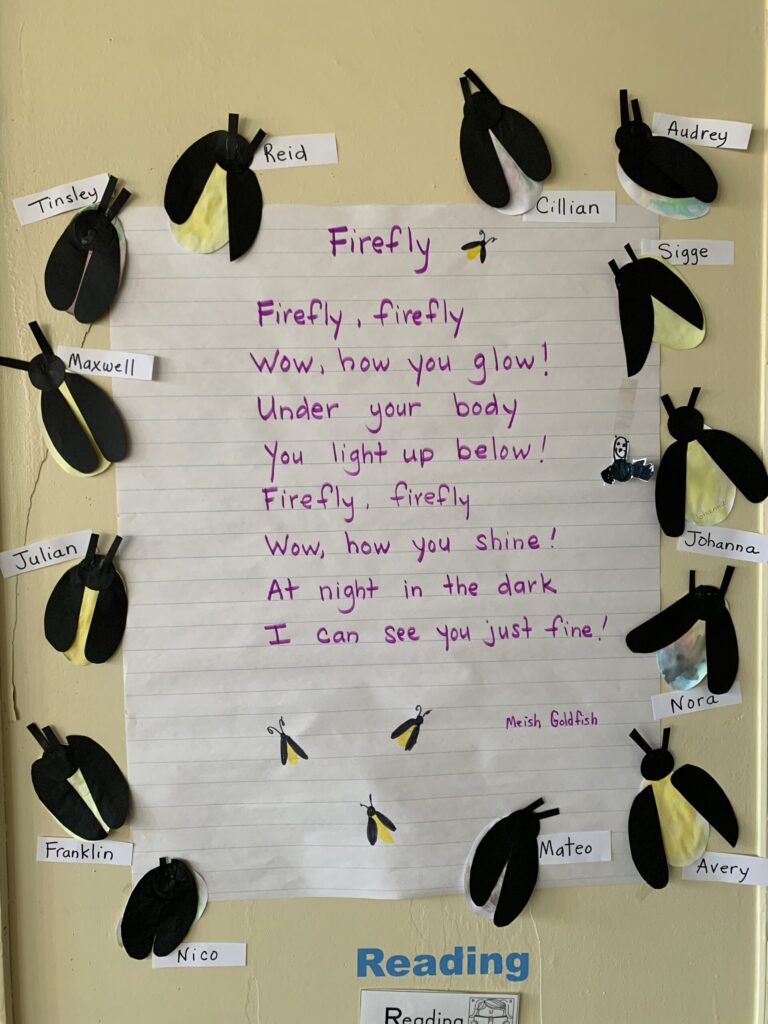 Reid
Audrey
Tinsley
Cillian
Firefly
Sigge
Firefly, firefly
Wow, how you glow!
Maxwell
Under your body
You light up below!
Firefly, firefly
Johanna
Wow, how you shine!
Johanna
Julian
At night in the dark
I can see you just fine!
Nora
Meish Goldfish
Franklin
Mateo
Avery
Nico
Reading
Reading